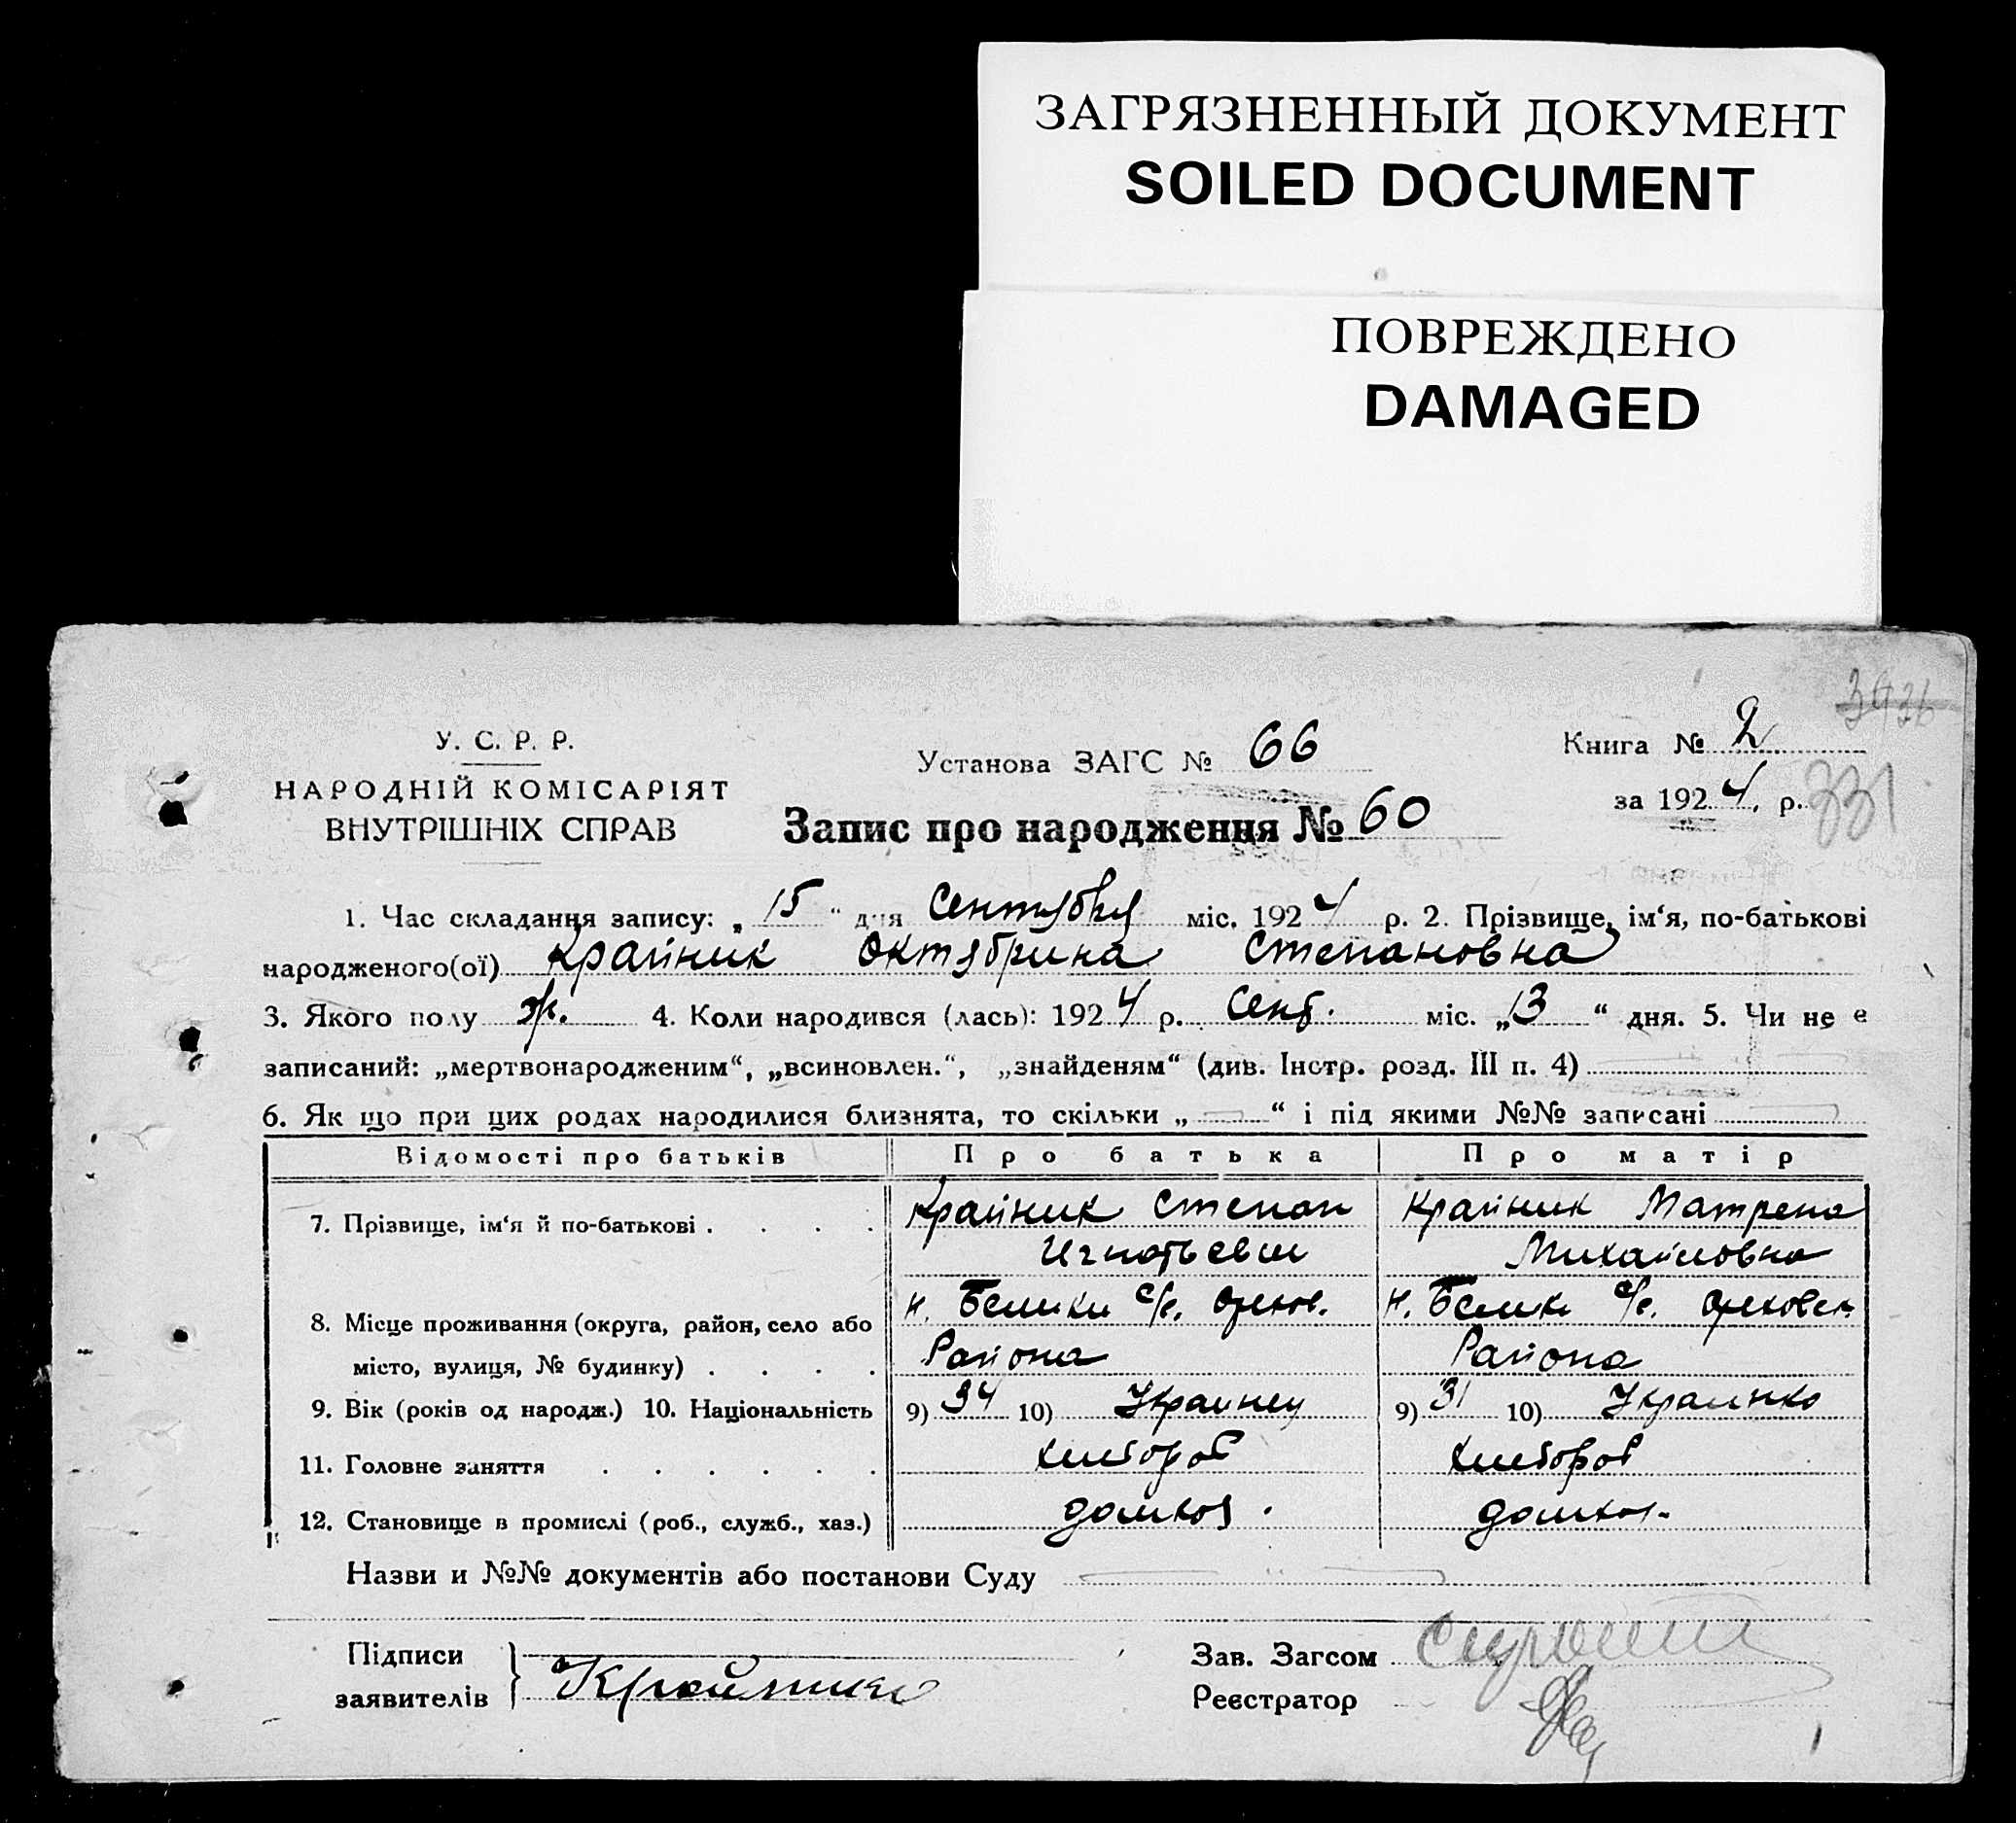 ЗАГРЯЗНЕННЫЙ ДОКУМЕНТ
SOILED DOCUMENT
ПОВРЕЖДЕНО
DAMAGED
3436
У. С. Р. Р.
НАРОДНІЙ КОМІСАРІЯТ
ВНУТРІШНІХ СПРАВ
Установа ЗАГС № 66
Книга № 2
за 1924. р. 331
Запис про народження № 60
1. Час складання запису: „ 15 “ дня Сентября міс. 1924 р. 2. Прізвище, ім‘я, по-батькові
народженого(ої) Крайник Октябрина Степановна
3. Якого полу ж. 4. Коли народився (лась): 1924 р. Сент. міс. „13 “ дня. 5. Чи не е
записаний: „мертвонародженим“, „всиновлен.“, „знайденям“ (див. Інстр. розд. III п. 4)
6. Як що при цих родах народилися близнята, то скільки „ “ і під якими №№ записані
Відомості про батьків Про батька Про матір
7. Прізвище, ім‘я й по-батькові . . . . Крайник Степан Крайник Матрена
Игнатьевич Михайловна
8. Місце проживання (округа, район, село або н. Белики с/с. Орехов. н. Белики с/с. Ореховск.
місто, вулиця, № будинку) . . . . Района Района
9. Вік (років од народж.) 10. Національність 9) 34 10) Украинец 9) 31 10) Украинка
11. Головне заняття . . . . . . хлебороб хлебороб
12. Становище в промислі (роб., служб., хаз.) домхоз. домхоз.
Назви и №№ документів або постанови Суду
Підписи
заявителів Крайник
Зав. Загсом
Реєстратор